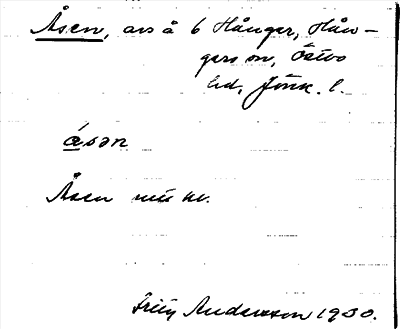 Åsen, avs å 6 Hånger, Hån-
gers sn, Östbo
hd, Jönk. l.
åsən
Åsen
Andersson 1930.